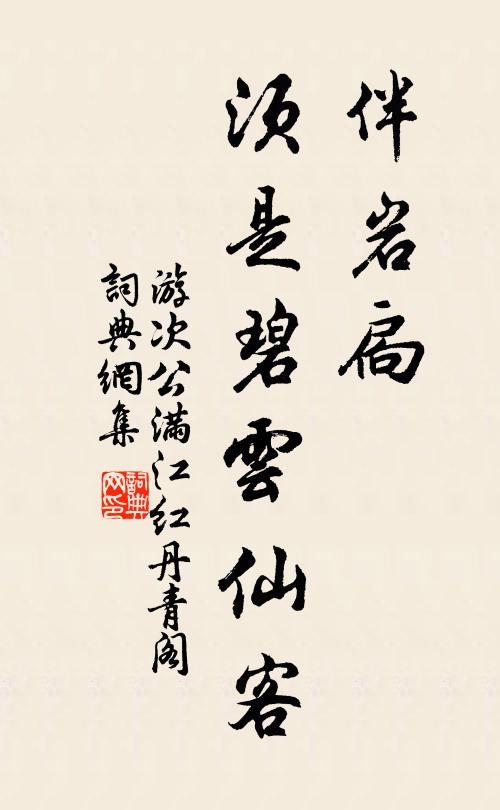 伴岩扃
須是碧雲仙客
游次公滿江红丹青阁
詞典網集
詞典
网印